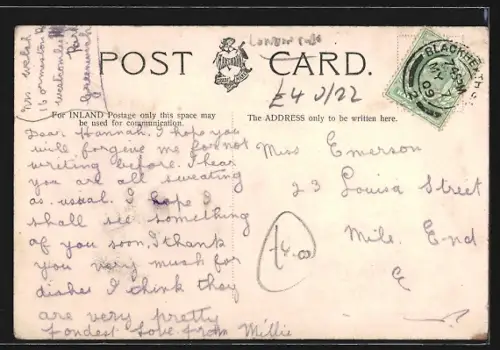 Mrs Welsh
16 Ormiston Rd
Westcombe
Park
Greenwich
POST CARD.
£4 J/22
For INLAND Postage only this space may
be used for communication.
The ADDRESS only to be written here.
BLACKHEATH. S.
MY
Dear Hannah. I hope you
will forgive me for not
writing before. I hear
you are all sweating
as usual. I hope I
shall see something
of you soon. I thank
you very much for
dishes I think they
are very pretty
Fondest Love from Millie
Miss Emerson
23 Louisa Street
Mile End
E
£4.00